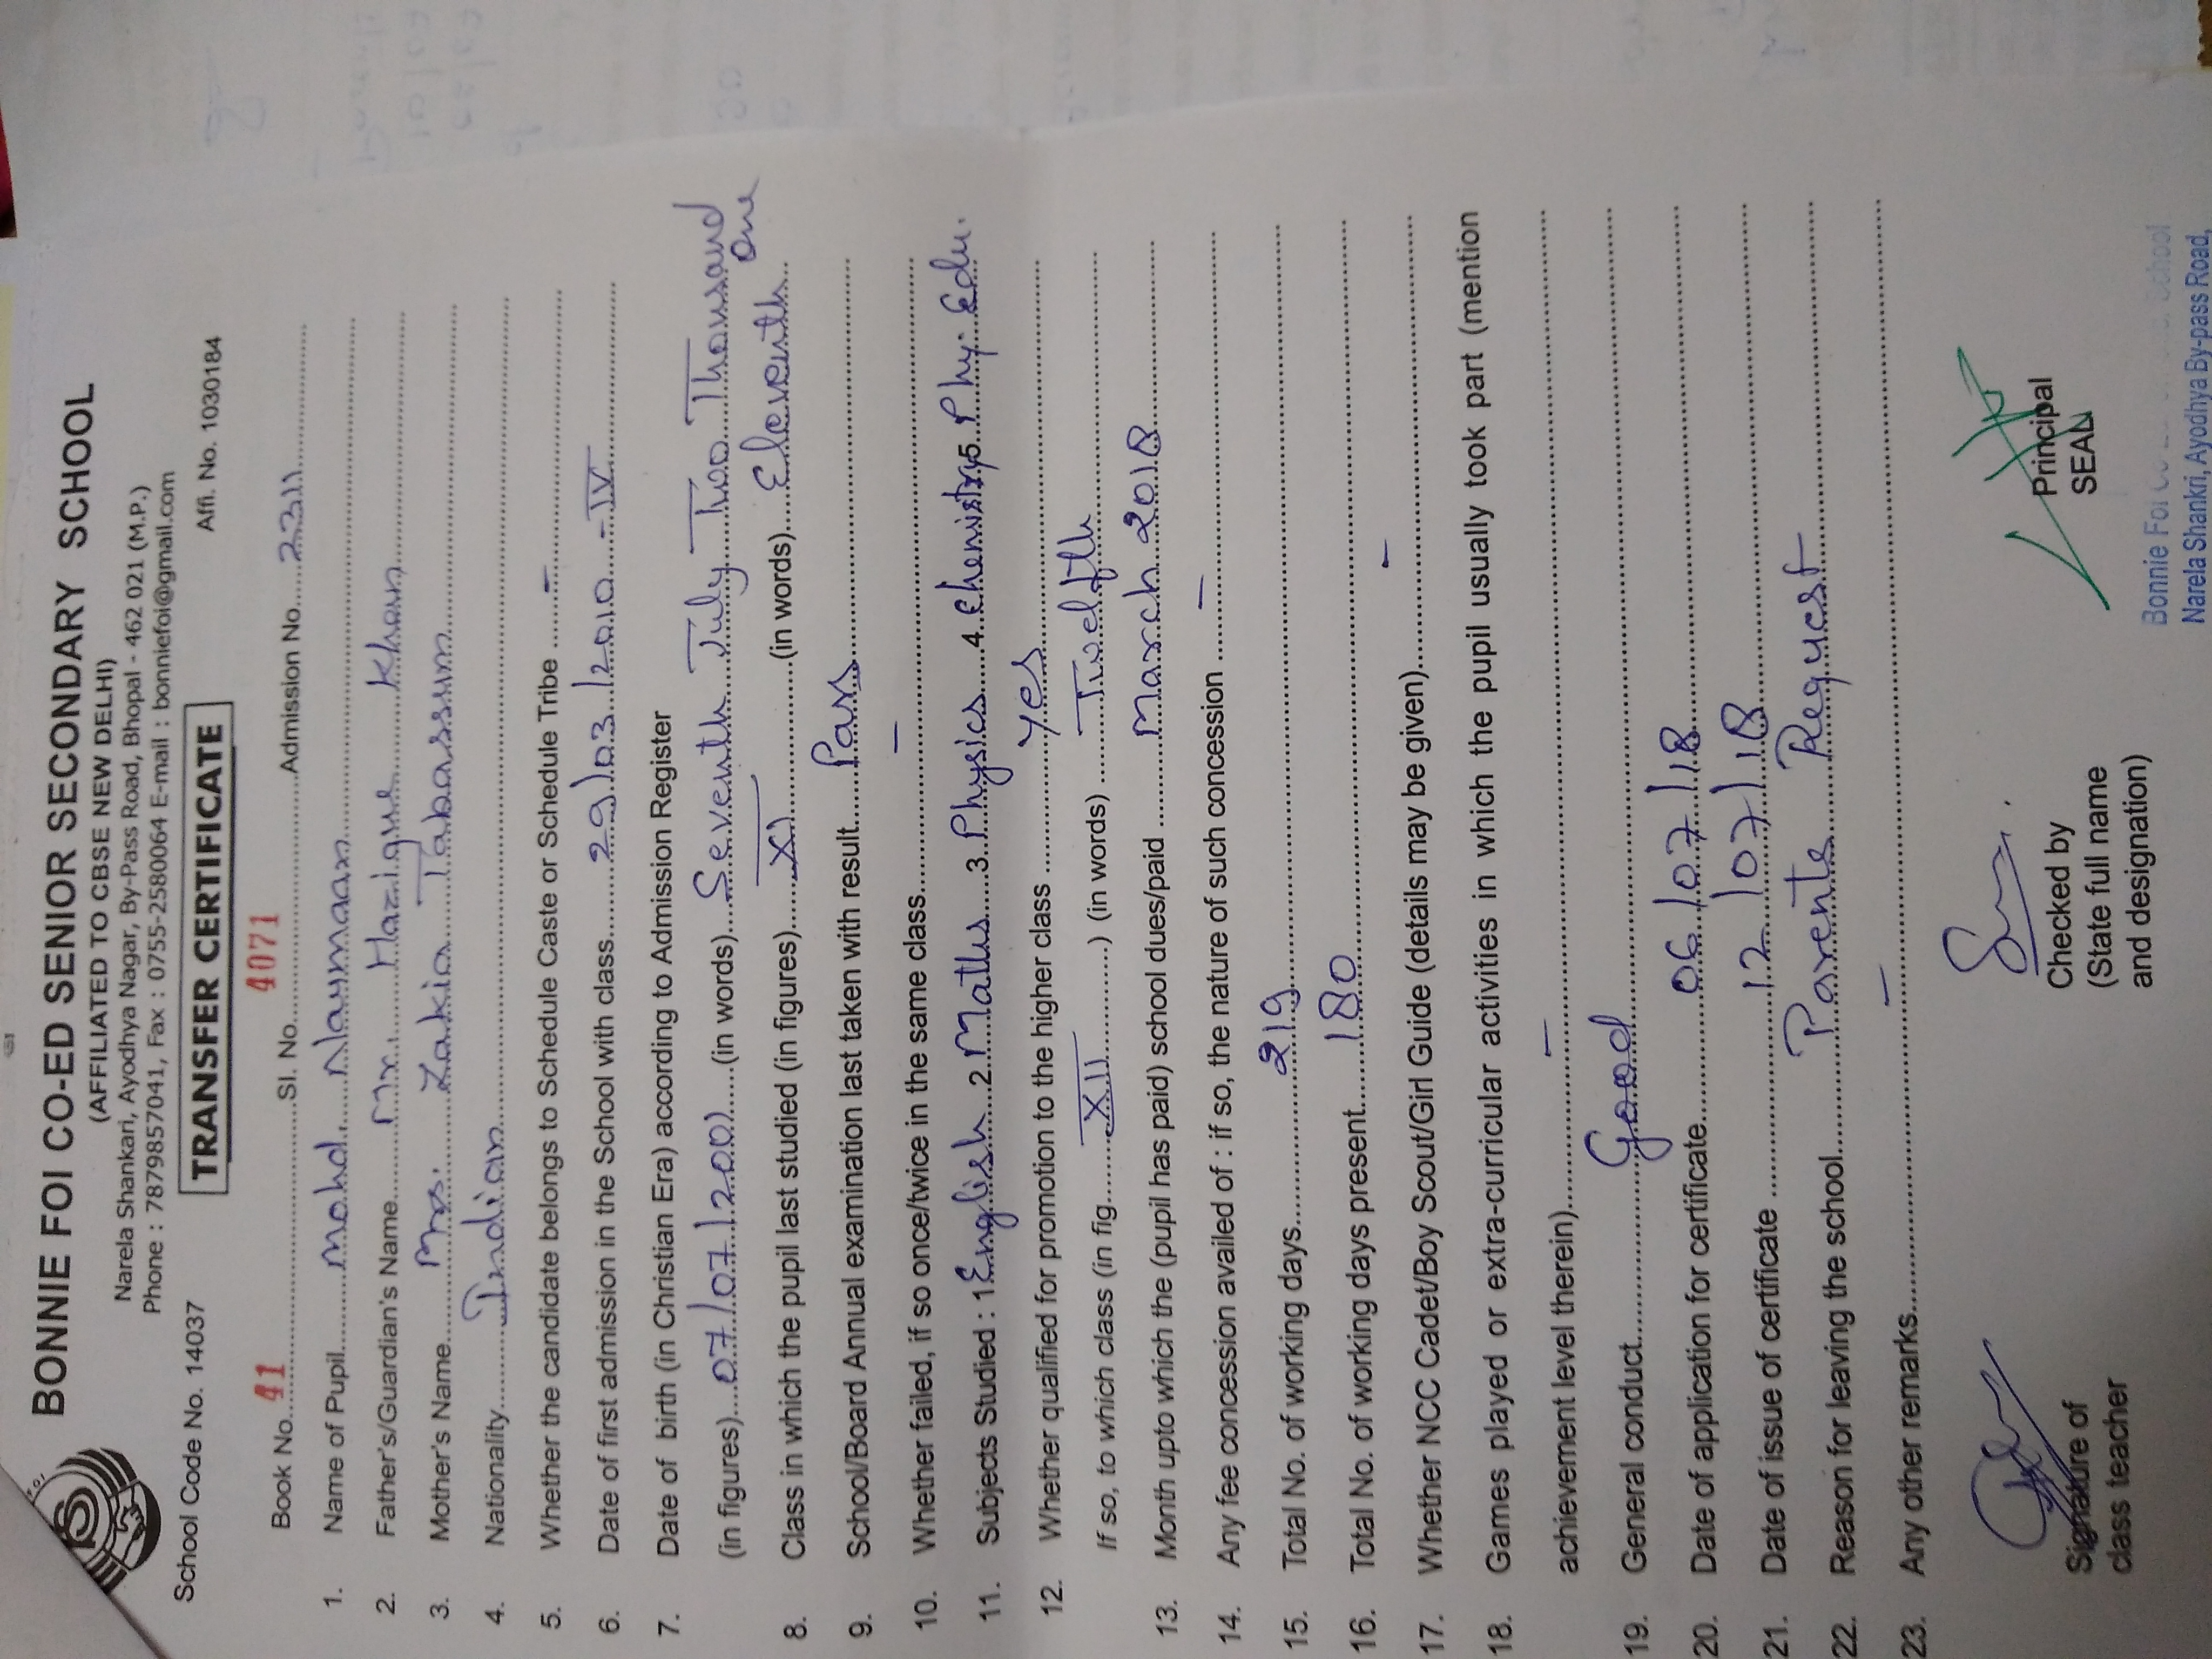 BONNIE FOI CO-ED SENIOR SECONDARY SCHOOL
(AFFILIATED TO CBSE NEW DELHI)
Narela Shankari, Ayodhya Nagar, By-Pass Road, Bhopal - 462 021 (M.P.)
Phone : 7879857041, Fax : 0755-2580064 E-mail : bonniefoi@gmail.com
School Code No. 14037 Affi. No. 1030184
TRANSFER CERTIFICATE
Book No. 41 Sl. No. 4071 Admission No. 2311
1. Name of Pupil Mohd Naymaan
2. Father's/Guardian's Name Mr. Hazique Khan
3. Mother's Name Mrs. Zakia Tabassum
4. Nationality Indian
5. Whether the candidate belongs to Schedule Caste or Schedule Tribe -
6. Date of first admission in the School with class 29/03/2010 - IV
7. Date of birth (in Christian Era) according to Admission Register
(in figures) 07/07/2001 (in words) Seventh July Two Thousand One
8. Class in which the pupil last studied (in figures) XI (in words) Eleventh
9. School/Board Annual examination last taken with result Pass
10. Whether failed, if so once/twice in the same class -
11. Subjects Studied : 1 English 2 Maths 3. Physics 4. Chemistry 5. Phy. Edu.
12. Whether qualified for promotion to the higher class Yes
If so, to which class (in fig. XII ) (in words) Twelfth
13. Month upto which the (pupil has paid) school dues/paid March 2018
14. Any fee concession availed of : if so, the nature of such concession -
15. Total No. of working days 219
16. Total No. of working days present 180
17. Whether NCC Cadet/Boy Scout/Girl Guide (details may be given) -
18. Games played or extra-curricular activities in which the pupil usually took part (mention
achievement level therein) -
19. General conduct Good
20. Date of application for certificate 06/07/18
21. Date of issue of certificate 12/07/18
22. Reason for leaving the school Parents Request
23. Any other remarks -
Signature of
class teacher
Checked by
(State full name
and designation)
Principal
SEAL
Bonnie Foi Co School
Narela Shankri, Ayodhya By-pass Road,